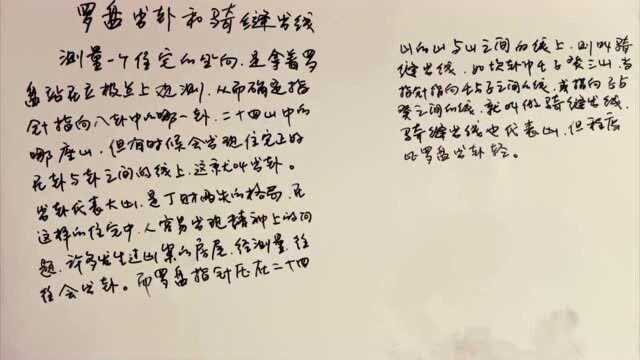 罗盘出卦和骑缝出线
测量一个住宅的坐向,是拿着罗
盘站在立极点上进测,从而确定指
针指向八卦中的哪一卦,二十四山中的
哪座山,但有时候会出现住宅正好
在卦与卦之间的线上,这就叫出卦。
出卦代表大凶,是丁财两失的格局,在
这样的住宅中,人容易出现精神上的问
题,许多发生过凶案的房屋,经测量,往
往会出卦。而罗盘指针压在二十四
山的山与山之间的线上,则叫骑
缝出线,如坎卦中壬子癸三山,当
指针指向壬与子之间的线,或指向子与
癸之间的线,就叫做骑缝出线,
骑缝出线也代表凶,但程度
比罗盘出卦轻。